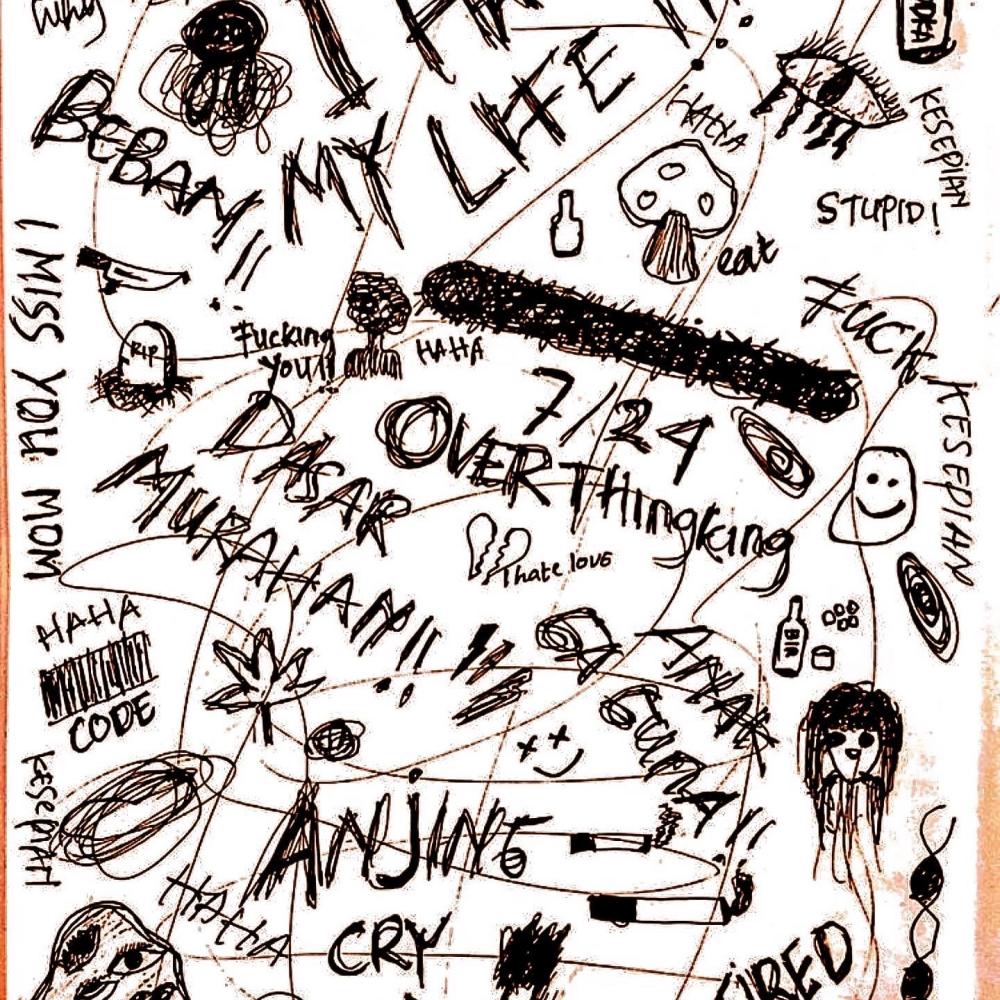 why
MY LIFE
BEBAN!!
HAHA
KESEPIAN
STUPID!
eat
I MISS YOU MOM
RIP
Fucking
YOU!!
HAHA
FUCK
7/24
OVERTHingking
KESEPIAN
DASAR
MURAHAN!!
I hate love
HAHA
CODE
BIR
ANAK
GUNA!!
KESEPIAN
ANJING
HAHA
CRY
TIRED